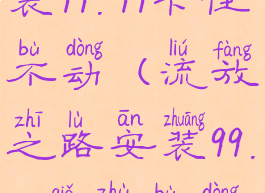 装99.99卡住
bù dòng liú fàng
不动（流放
zhī lù ān zhuāng
之路安装99.
zhù bù dòng